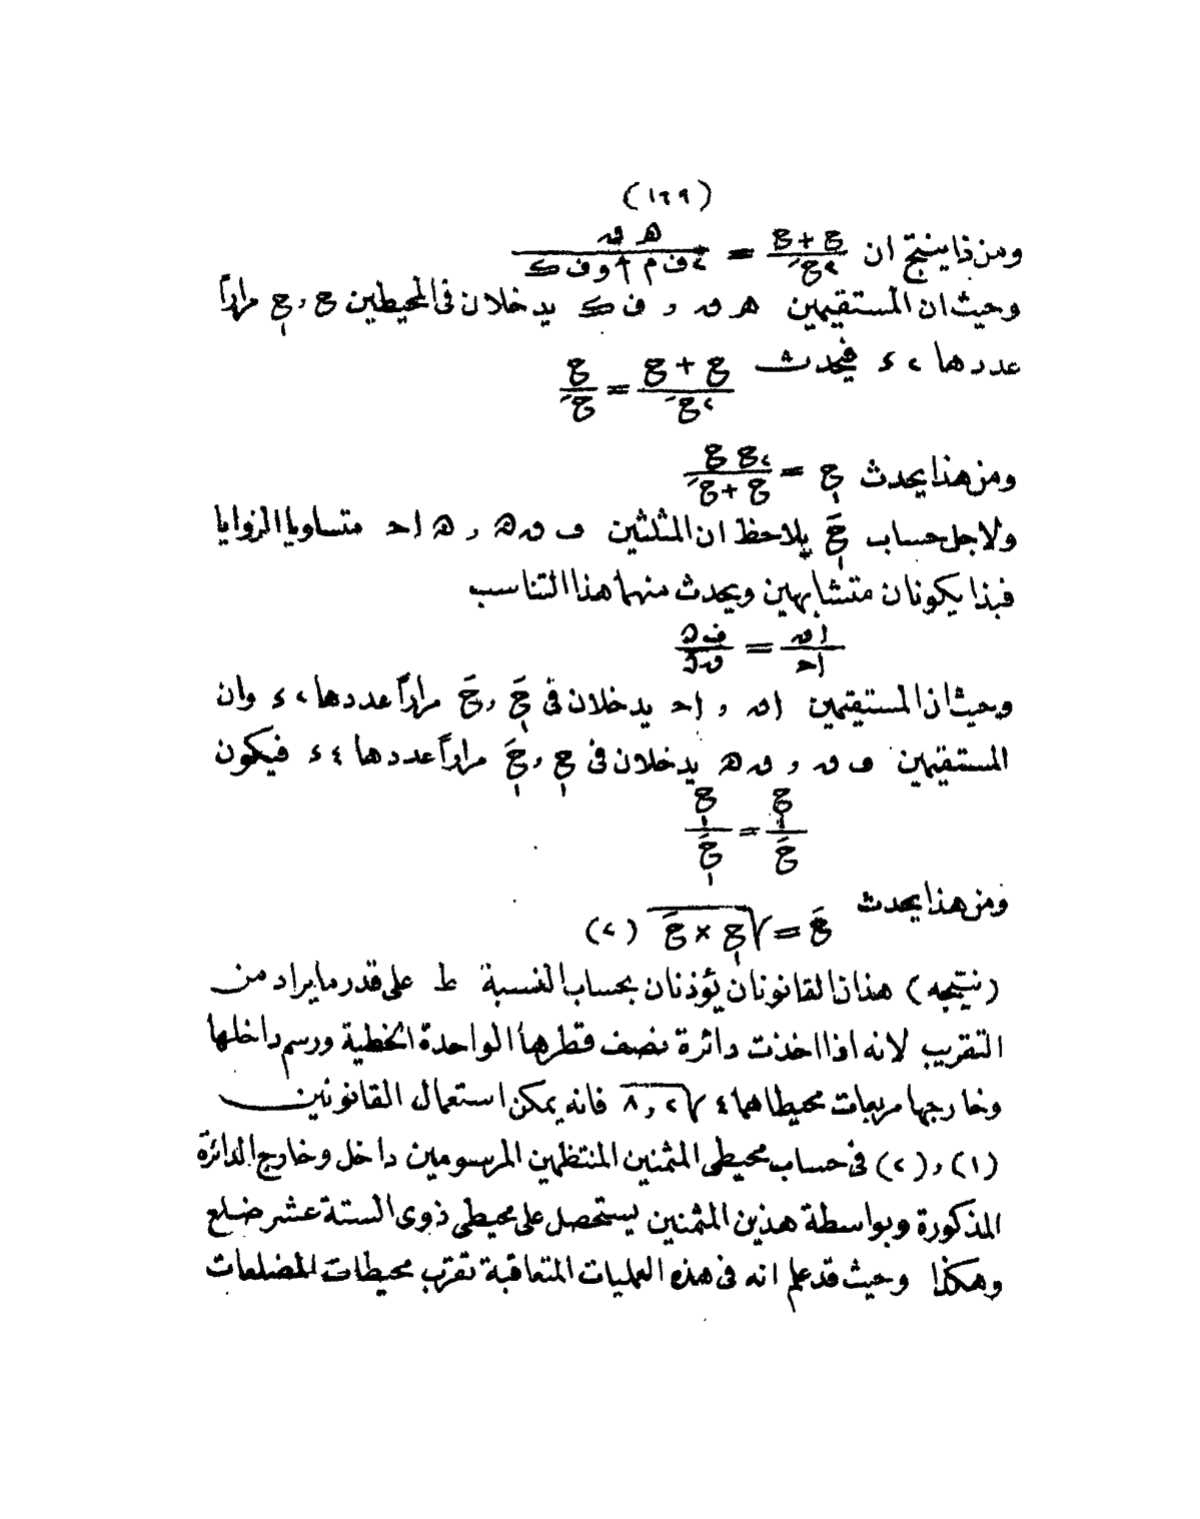 (١٦٩)
ومن ذا ينتج ان (ح + ح)/(٢ح َ) = (ه ق)/(٢ ف م أ و ف ك)
وحيث ان المستقيمين ه ق و ف ك يدخلان فى المحيطين ح , ح مرارا
عددها ٢ ء فيحدث (ح + ح)/(٢ح َ) = ح/ح َ
ومن هذا يحدث ح = (٢ح ح)/(ح + ح َ)
ولاجل حساب حَ يلاحظ ان المثلثين ف ق ه و ه ا د متساويا الزوايا
فبذا يكونان متشابهين ويحدث منهما هذا التناسب
ا ق / ا د = ف ه / ق ه
وحيث ان المستقيمين ا ق و ا د يدخلان فى حَ , حَ مراراً عددها ٢ ء وان
المستقيمين ف ق و ق ه يدخلان فى ح , حَ مراراً عددها ٤ ء فيكون
ح/حَ = ح/حَ
ومن هذا يحدث
حَ = √(ح × حَ) (٢)
(نتيجه) هذان القانونان يؤذنان بحساب النسبة ط على قدر ما يراد من
التقريب لانه اذا اخذت دائرة نصف قطرها الواحدة الخطية ورسم داخلها
وخارجها مربعات محيطاهما ٤√٢ , ٨ فانه يمكن استعمال القانونين
(١) , (٢) فى حساب محيطى المثمنين المنتظمين المرسومين داخل وخارج الدائرة
المذكورة وبواسطة هذين المثمنين يستحصل على محيطى ذوى الستة عشر ضلع
وهكذا وحيث قد علم انه فى هذه العمليات المتعاقبة تقرب محيطات المضلعات